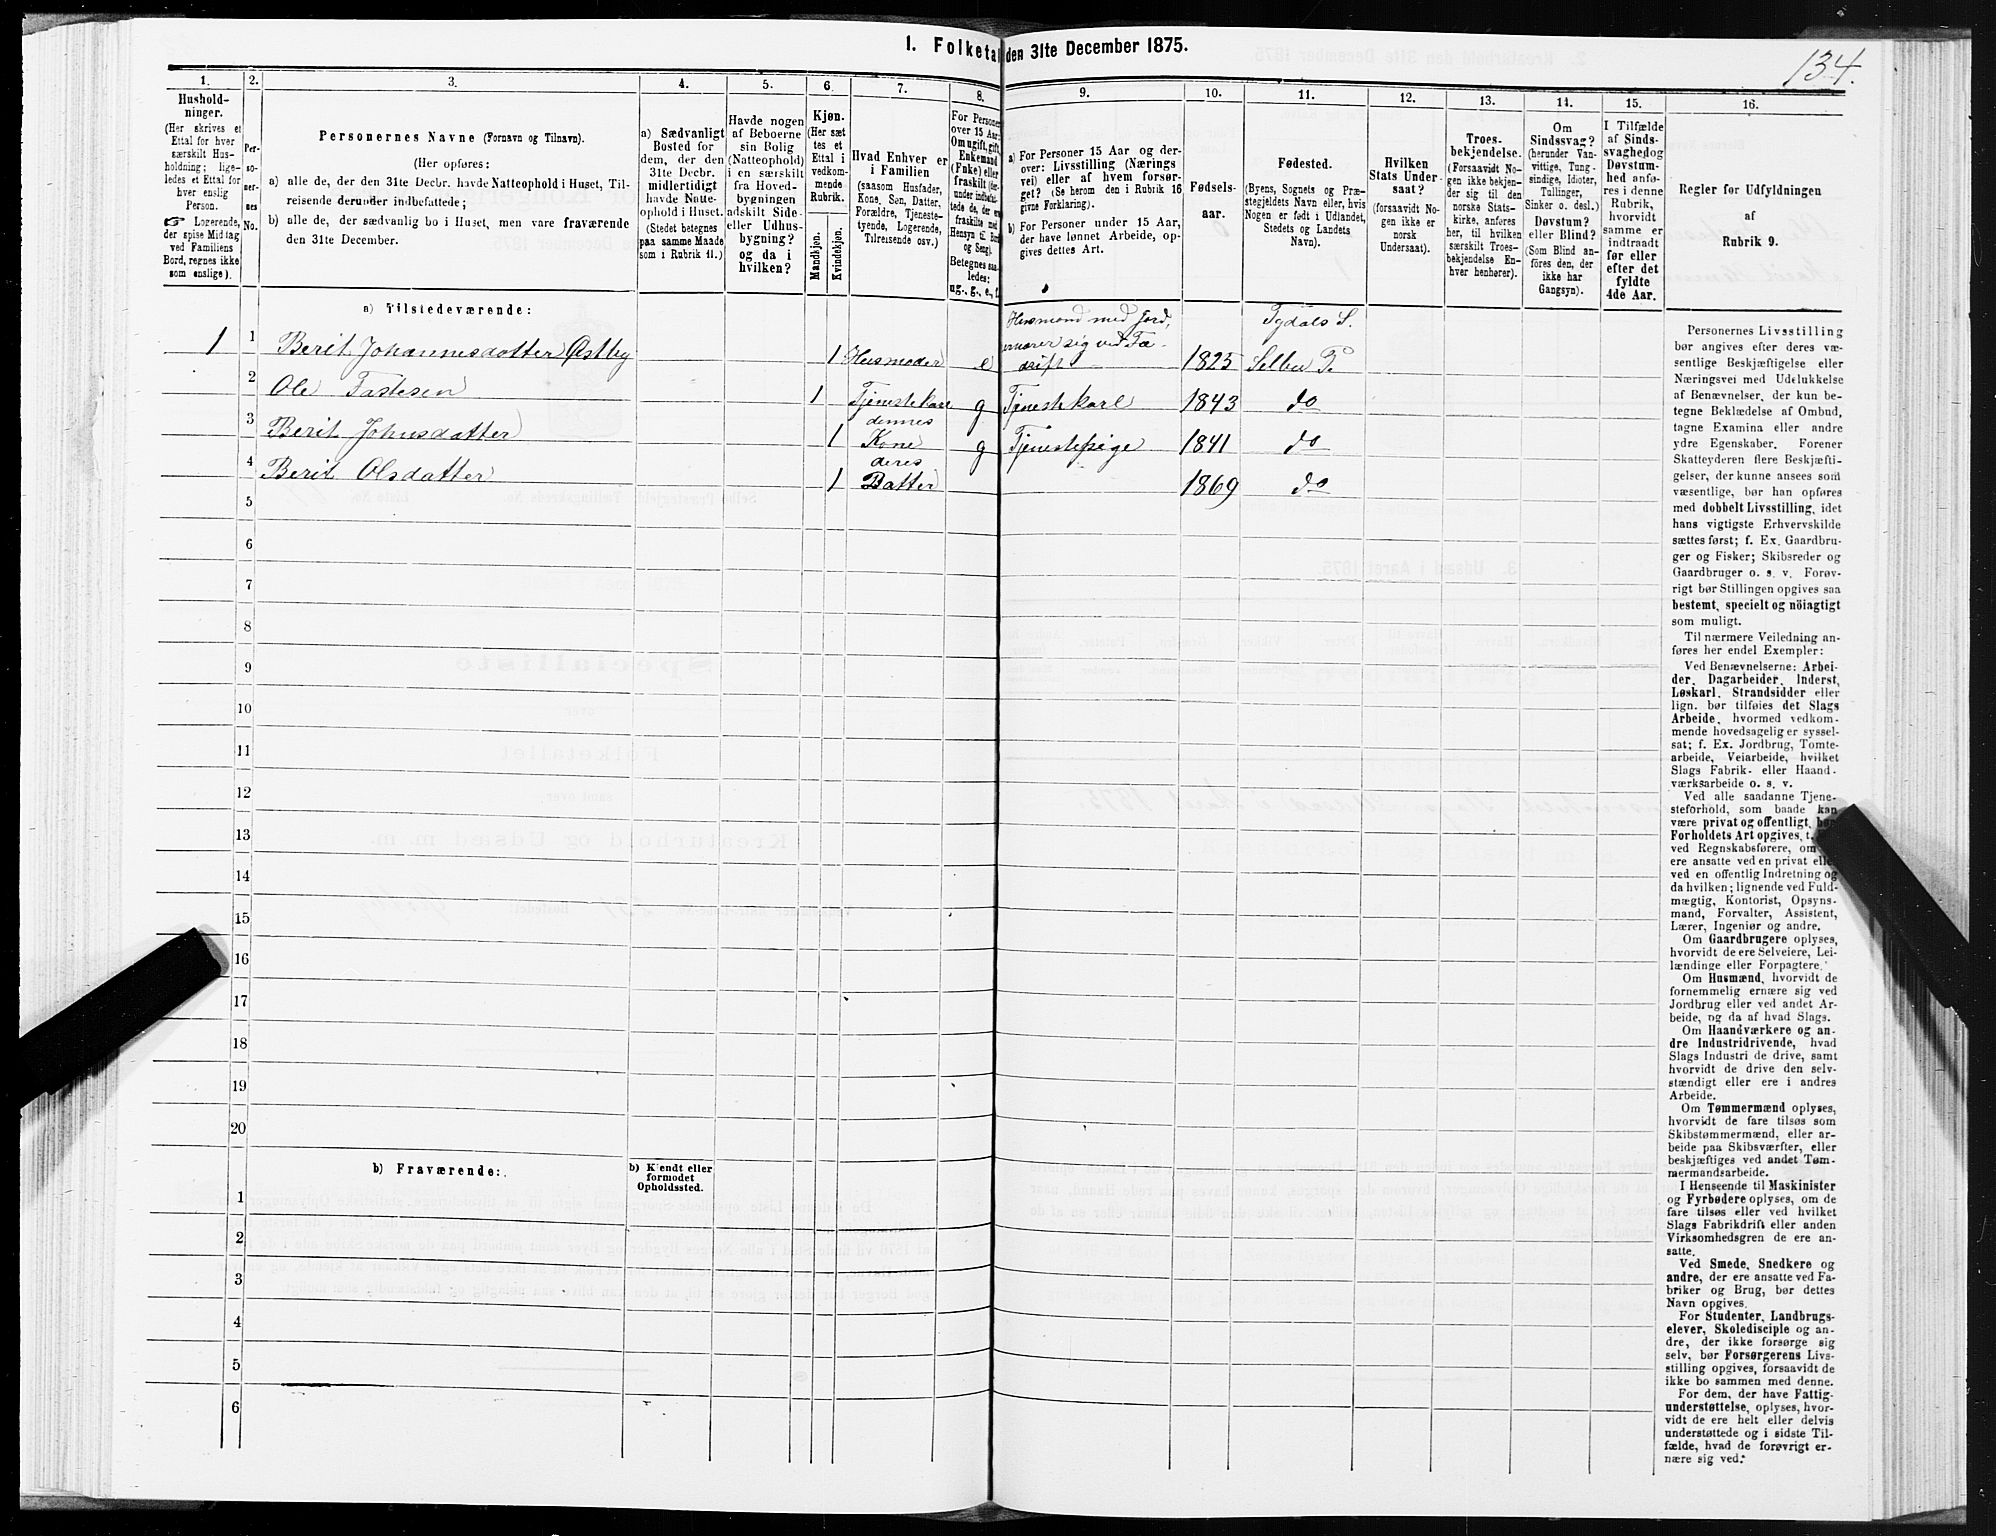 1. Folketal den 31te December 1875.
134.
1.
2.
3.
4.
5.
6.
7.
8.
9.
10.
11.
12.
13.
14.
15.
16.
Hushold-
ninger.
(Her skrives et
Ettal for hver
særskilt Hus-
holdning; lige-
ledes et Ettal for
hver enslig
Person.
☞ Logerende,
der spise Middag
ved Familiens
Bord, regnes ikke
som enslige).
Per-
so-
ner-
nes
No.
Personernes Navne (Fornavn og Tilnavn).
(Her opføres:
a) alle de, der den 31te Decbr. havde Natteophold i Huset, Til-
reisende derunder indbefattede;
b) alle de, der sædvanlig bo i Huset, men vare fraværende
den 31te December.
a) Sædvanligt
Bosted for
dem, der den
31te Decbr.
midlertidigt
havde Natte-
ophold i Huset.
(Stedet betegnes
paa samme Maade
som i Rubrik 11.)
Havde nogen
af Beboerne
sin Bolig
(Natteophold)
i en særskilt
fra Hoved-
bygningen
adskilt Side-
eller Udhus-
bygning?
og da i
hvilken?
Kjøn.
(Her sæt
tes et
Ettal i
vedkom-
mende
Rubrik.
Mandkjøn.
Kvindekjøn.
Hvad Enhver er
i Familien
(saasom Husfader,
Kone, Søn, Datter,
Forældre, Tjeneste-
tyende, Logerende,
Tilreisende osv.)
For Personer
over 15 Aar:
Om ugift, gift,
Enkemand
(Enke) eller
fraskilt (der-
under indbefat-
tede de, der ere
fraskilte med
Hensyn til Bord
og Seng).
Betegnes saa-
ledes:
ug., g., e., f.
a) For Personer 15 Aar og der-
over: Livsstilling (Nærings
vei) eller af hvem forsør-
get? (Se herom den i Rubrik 16
givne Forklaring).
b) For Personer under 15 Aar,
der have lønnet Arbeide, op-
gives dettes Art.
Fødsels-
aar.
Fødested.
(Byens, Sognets og Præ-
stegjeldets Navn eller, hvis
Nogen er født i Udlandet,
Stedets og Landets
Navn).
Hvilken
Stats Under-
saat?
(forsaavidt No-
gen ikke er
norsk
Undersaat).
Troes-
bekjendelse.
(Forsaavidt No-
gen ikke bekjen-
der sig til den
norske Stats-
kirke, anføres
her, til hvilken
særskilt Troes-
bekjendelse En-
hver henhører).
Om
Sindssvag?
(herunder Van-
vittige, Tung-
sindige, Idioter,
Tullinger,
Sinker o. desl.)
Døvstum?
eller Blind?
(Som Blind an-
føres den, der
ikke har
Gangsyn).
I Tilfælde
af Sinds-
svaghed og
Døvstum-
hed anfø-
res i denne
Rubrik,
hvorvidt
samme er
indtraadt
før eller
efter det
fyldte
4de Aar.
Regler for Udfyldningen
af
Rubrik 9.
a) Tilstedeværende:
1 1 Berit Johannesdatter Østby 1 Husmoder e Husmand med Jord, ernærer sig ved Fædrift 1825 Tydals S. Selbu P.
2 Ole Fastesen 1 Tjenestekarl g Tjenestekarl 1843 do
3 Berit Johnsdatter 1 dennes Kone g Tjenestepige 1841 do
4 Berit Olsdatter 1 deres Datter 1869 do
5
6
7
8
9
10
11
12
13
14
15
16
17
18
19
20
b) Fraværende:
b) Kjendt eller
formodet
Opholdssted.
1
2
3
4
5
6
Personernes Livsstilling
bør angives efter deres væ-
sentlige Beskjæftigelse eller
Næringsvei med Udelukkelse
af Benævnelser, der kun be-
tegne Beklædelse af Ombud,
tagne Examina eller andre
ydre Egenskaber. Forener
Skatteyderen flere Beskjæfti-
gelser, der kunne ansees som
væsentlige, bør han opføres
med dobbelt Livsstilling, idet
hans vigtigste Erhvervskilde
sættes først; f. Ex. Gaardbru-
ger og Fisker; Skibsreder og
Gaardbruger o. s. v. Forøv-
rigt bør Stillingen opgives saa
bestemt, specielt og nöiagtigt
som muligt.
Til nærmere Veiledning an-
føres her endel Exempler:
Ved Benævnelserne: Arbei-
der, Dagarbeider, Inderst,
Løskarl, Strandsidder eller
lign. bør tilføies det Slags
Arbeide, hvormed vedkom-
mende hovedsagelig er syssel-
sat; f. Ex. Jordbrug, Tomte-
arbeide, Veiarbeide, hvilket
Slags Fabrik- eller Haand-
værksarbeide o. s. v.
Ved alle saadanne Tjene-
steforhold, som baade kan
være privat og offentligt, bør
Forholdets Art opgives, t.
ved Regnskabsførere, om
ere ansatte ved en privat eller
ved en offentlig Indretning og
da hvilken; lignende ved Fuld-
mægtig, Kontorist, Opsyns-
mand, Forvalter, Assistent,
Lærer, Ingeniør og andre.
Om Gaardbrugere oplyses,
hvorvidt de ere Selveiere, Lei-
lændinge eller Forpagtere.
Om Husmænd, hvorvidt de
fornemmelig ernære sig ved
Jordbrug eller ved andet Ar-
beide, og da af hvad Slags.
Om Haandværkere og an-
dre Industridrivende, hvad
Slags Industri de drive, samt
hvorvidt de drive den selv-
stændigt eller ere i andres
Arbeide.
Om Tømmermænd oplyses,
hvorvidt de fare tilsøs som
Skibstømmermænd, eller ar-
beide paa Skibsværfter, eller
beskjæftiges ved andet Tøm-
mermandsarbeide.
I Henseende til Maskinister
og Fyrbødere oplyses, om de
fare tilsøs eller ved hvilket
Slags Fabrikdrift eller anden
Virksomhedsgren de ere an-
satte.
Ved Smede, Snedkere og
andre, der ere ansatte ved Fa-
briker og Brug, bør dettes
Navn opgives.
For Studenter, Landbrugs-
elever, Skoledisciple og an-
dre, der ikke forsørge sig
selv, bør Forsørgerens Livs-
stilling opgives, forsaavidt de
ikke bo sammen med denne.
For dem, der have Fattig-
understøttelse, oplyses, hvor-
vidt de ere helt eller delvis
understøttede og i sidste Til-
fælde, hvad de forøvrigt er-
nære sig ved.